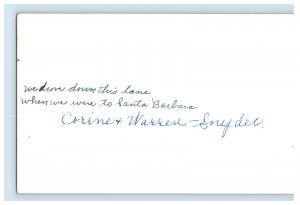 we drove down this lane
when we were to Santa Barbara
Corine & Warren - Snyder.